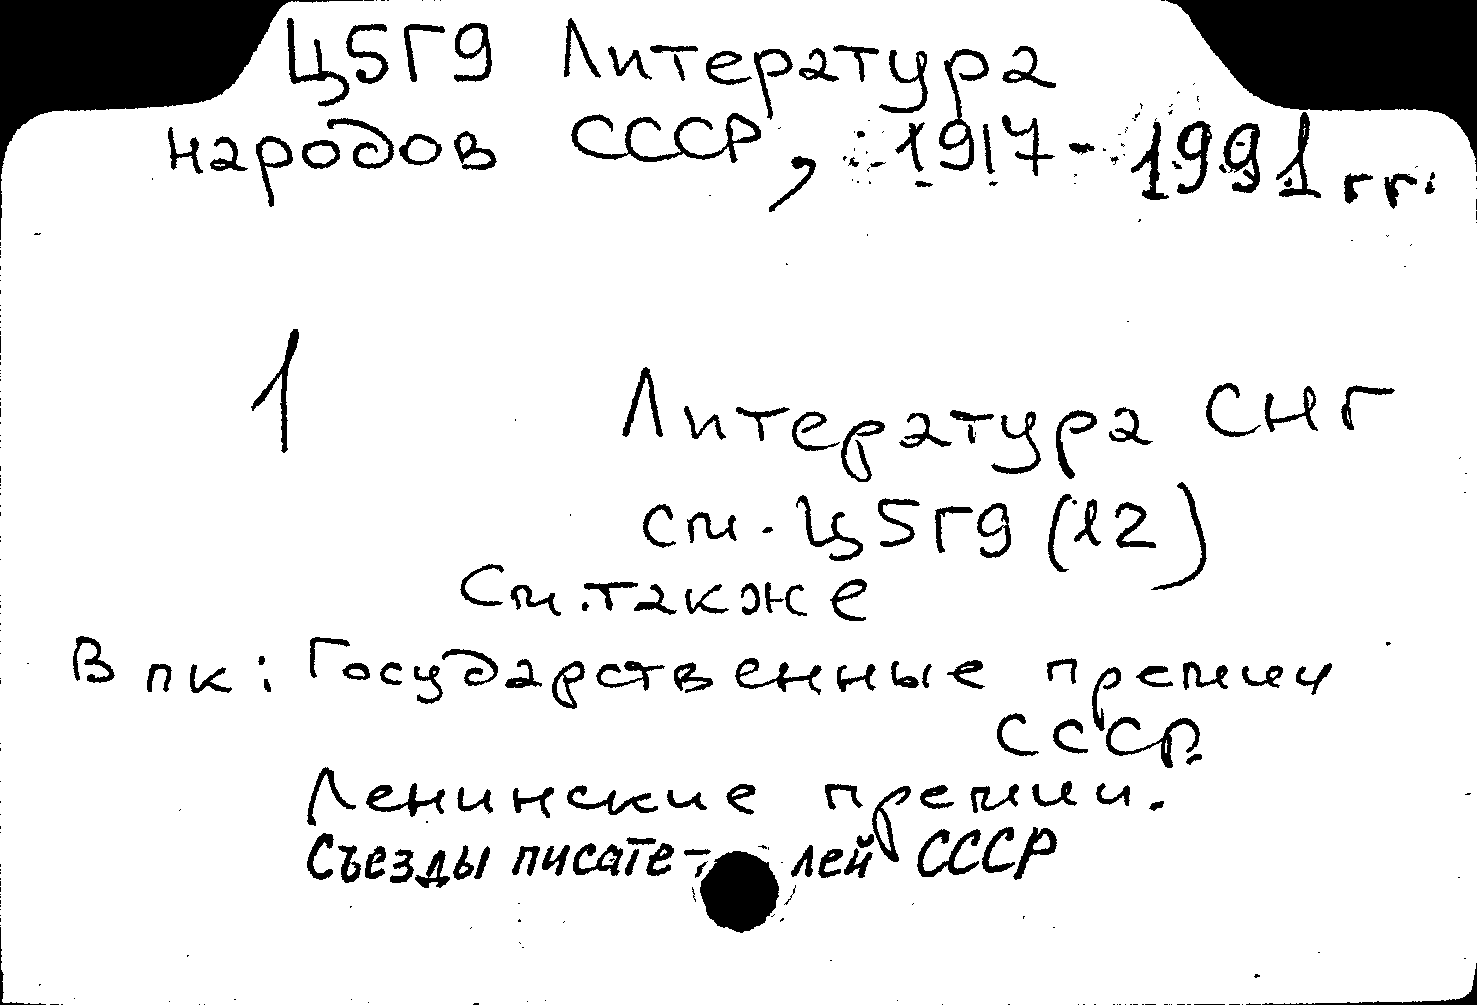 Ц5Г9 Литература
народов СССР, 1917-1991 гг.
1
Литература СНГ
см. Ц5Г9(12)
См. также
В пк: Государственные премии
СССР.
Ленинские премии.
Съезды писате-лей СССР